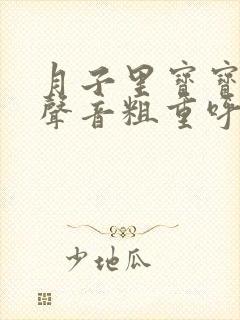 月子里寶寶
聲音粗重呼
少地瓜